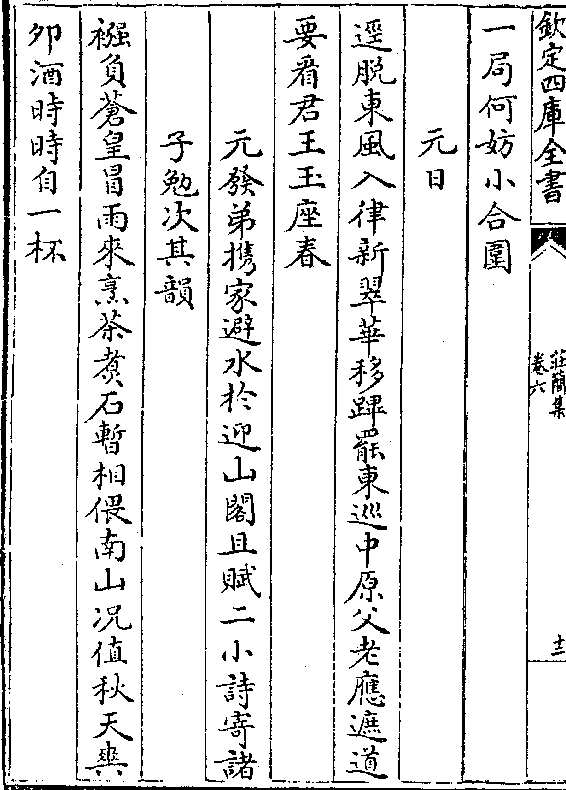 欽定四庫全書
莊簡集
卷六
十二
一局何妨小合圍
元日
逕脱東風入律新翠華移蹕罷東巡中原父老應遮道
要看君王玉座春
元發弟攜家避水於迎山閣且賦二小詩寄諸
子勉次其韻
襁負蒼皇冒雨來烹茶煑石暫相偎南山况值秋天爽
夘酒時時自一杯